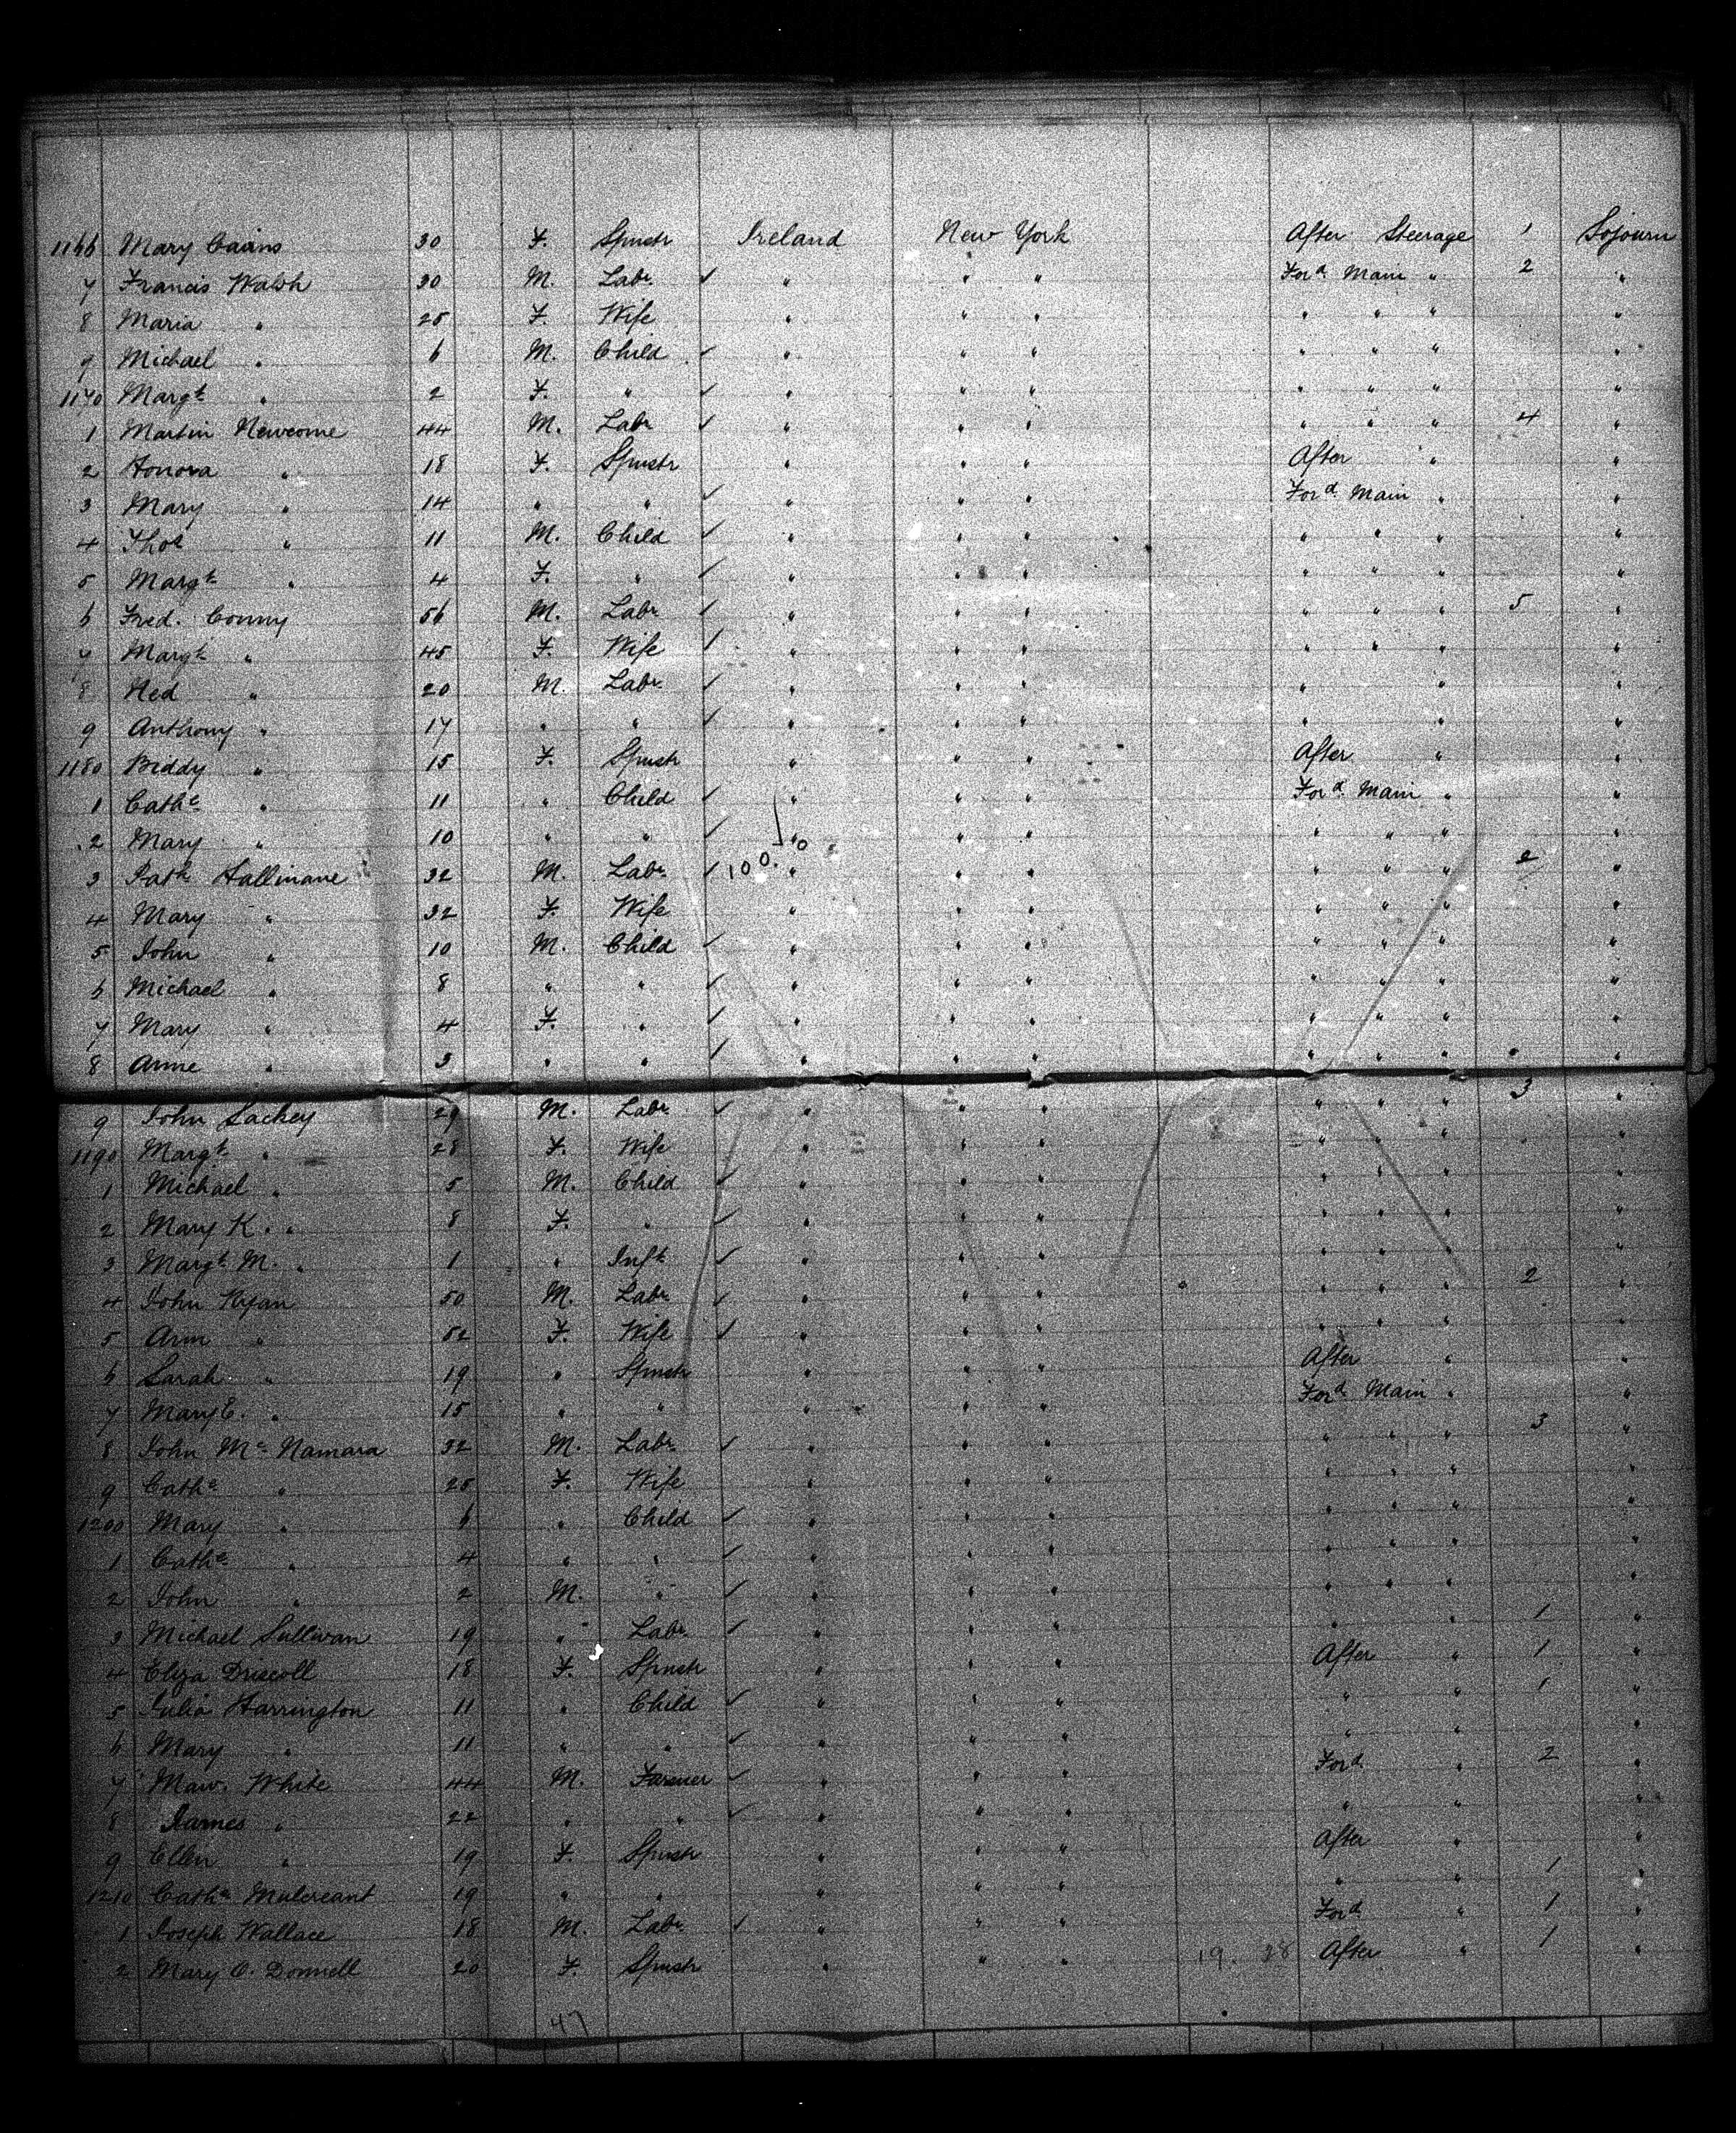 1166 Mary Cains 30 F. Spinstr Ireland New York After Steerage 1 Sojourn
7 Francis Walsh 30 M. Labr ✓ " " " Ford Main " 2 "
8 Maria " 25 F. Wife " " " " " " "
9 Michael " 6 M. Child ✓ " " " " " " "
1170 Margt " 2 F. " ✓ " " " " " " "
1 Martin Newcome 44 M. Labr ✓ " " " " " " 4 "
2 Honora " 18 F. Spinstr " " " After " "
3 Mary " 14 " " ✓ " " " Ford Main " "
4 Thos " 11 M. Child ✓ " " " " " " "
5 Margt " 4 F. " ✓ " " " " " " "
6 Fred. Conny 56 M. Labr ✓ " " " " " " 5 "
7 Margt " 45 F. Wife ✓ " " " " " " "
8 Ned " 20 M. Labr ✓ " " " " " "
9 Anthony " 17 " " ✓ " " " " " "
1180 Biddy " 15 F. Spinstr " " " After " "
1 Cathe " 11 " Child ✓ " " " Ford Main " "
2 Mary " 10 " " ✓ " " " " " " "
3 Patk Hallinane 32 M. Labr ✓ 100. " " " " " " 2 "
4 Mary " 32 F. Wife " " " " " " "
5 John " 10 M. Child ✓ " " " " " " "
6 Michael " 8 " " ✓ " " " " " " "
7 Mary " 4 F. " ✓ " " " " " " "
8 Anne " 3 " " ✓ " " " " " " "
9 John Lackey 29 M. Labr ✓ " " " " " " 3 "
1190 Margt " 28 F. Wife " " " " " " "
1 Michael " 5 M. Child ✓ " " " " " " "
2 Mary K. " 8 F. " ✓ " " " " " " "
3 Margt M. " 1 " Inft ✓ " " " " " " "
4 John Ryan 50 M. Labr ✓ " " " " " " 2 "
5 Ann " 52 F. Wife ✓ " " " " " " "
6 Sarah " 19 " Spinstr " " " After " "
7 Mary E. " 15 " " " " " Ford Main " "
8 John Mc Namara 32 M. Labr ✓ " " " " " " 3 "
9 Cathe " 25 F. Wife " " " " " " "
1200 Mary " 6 " Child ✓ " " " " " " "
1 Cathe " 4 " " ✓ " " " " " " "
2 John " 2 M. " ✓ " " " " " " "
3 Michael Sullivan 19 " Labr ✓ " " " " " 1 "
4 Eliza Driscoll 18 F. Spinstr " " " After " 1 "
5 Julia Harrington 11 " Child ✓ " " " " " 1 "
6 Mary " 11 " " ✓ " " " " " "
7 Maw. White 44 M. Farmer ✓ " " " Ford " 2 "
8 James " 22 " " ✓ " " " " " "
9 Ellen " 19 F. Spinstr " " " After " "
1210 Cathe Mulcreant 19 " " " " " " " 1 "
1 Joseph Wallace 18 M. Labr ✓ " " " Ford " 1 "
2 Mary O. Donnell 20 F. Spinstr " " " 19. 28 After " 1 "
47